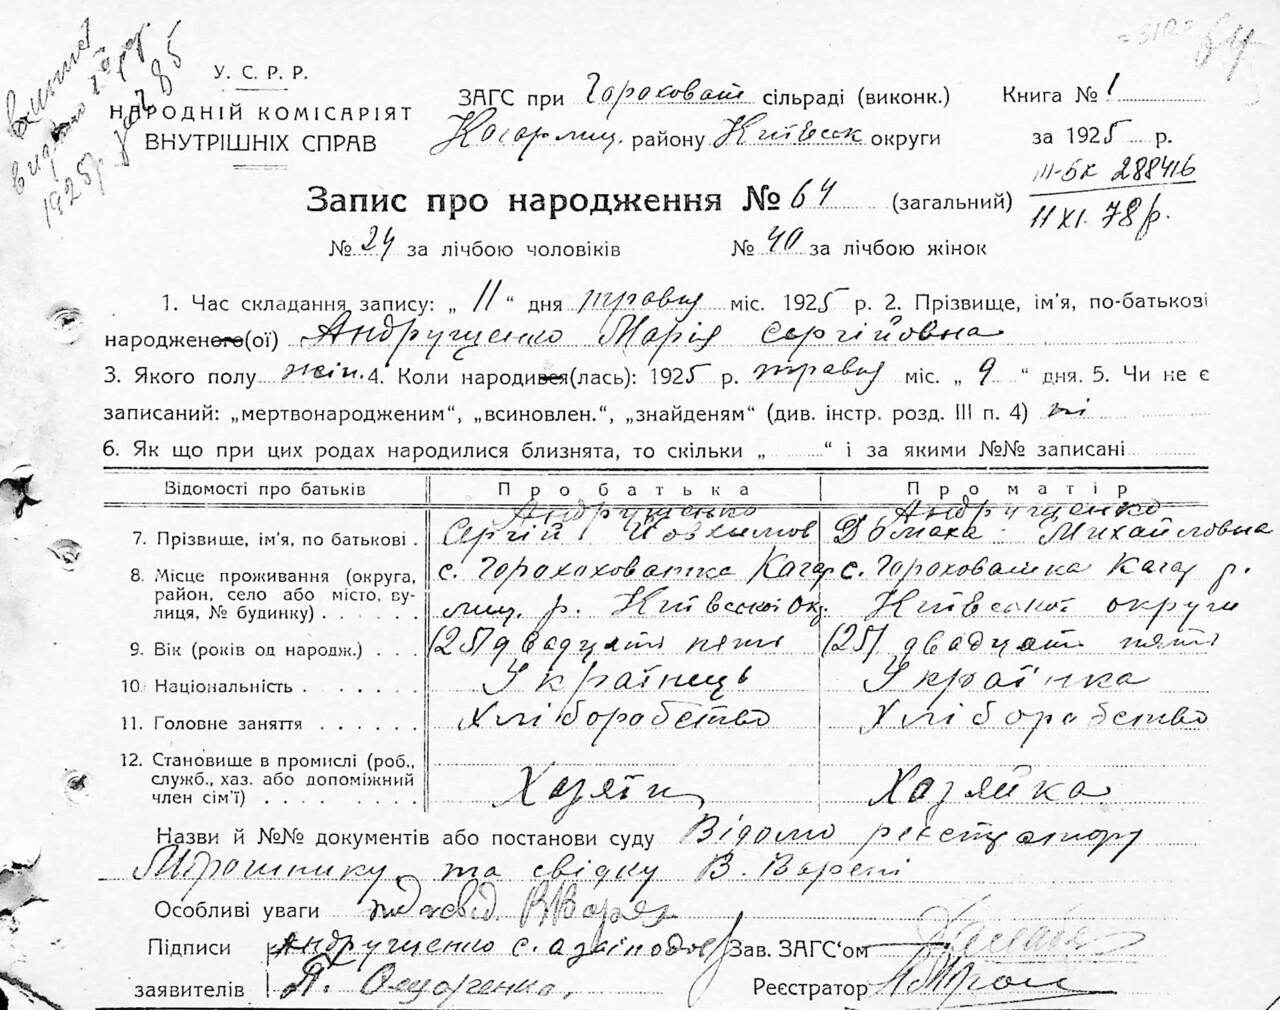 витяг
видано
1925р. за № 85
64
У. С. Р. Р.
НАРОДНІЙ КОМІСАРІЯТ
ВНУТРІШНІХ СПРАВ
ЗАГС при Гороховат сільраді (виконк.)
Кагарлиц. району Київськ округи
Книга № 1
за 1925 р.
III-БК 288416
11 XI. 78 р.
Запис про народження № 64 (загальний)
№ 24 за лічбою чоловіків № 40 за лічбою жінок
1. Час складання запису: „ 11 “ дня травня міс. 1925 р. 2. Прізвище, ім'я, по-батькові
народженого(ої) Андрущенко Марія Сергійовна
3. Якого полу жін. 4. Коли народився(лась): 1925 р. травня міс. „ 9 “ дня. 5. Чи не є
записаний: „мертвонародженим“, „всиновлен.“, „знайденям“ (див. інстр. розд. III п. 4) ні
6. Як що при цих родах народилися близнята, то скільки „ “ і за якими №№ записані
Відомості про батьків Про батька Про матір
Андрущенко Андрущенко
7. Прізвище, ім'я, по батькові . Сергій Йовхимов Домаха Михайловна
8. Місце проживання (округа, район, село або місто, вулиця, № будинку) с. Горохоховатка Кагар с. Гороховатка Кагар р.
лиц. р. Київської ок. Київської округи
9. Вік (років од народж.) . . . (25) двадцять пять (25) двадцять пять
10. Національність Українець Українка
11. Головне заняття Хліборобство Хліборобство
12. Становище в промислі (роб.,
служб., хаз. або допоміжний
член сім'ї) Хазяїн Хазяйка
Назви й №№ документів або постанови суду Відомо реєстратору
Мірошнику та свідку В. Варені
Особливі уваги
Підписи Андрущенко С. а за Зав. ЗАГС'ом
заявителів П. Реєстратор